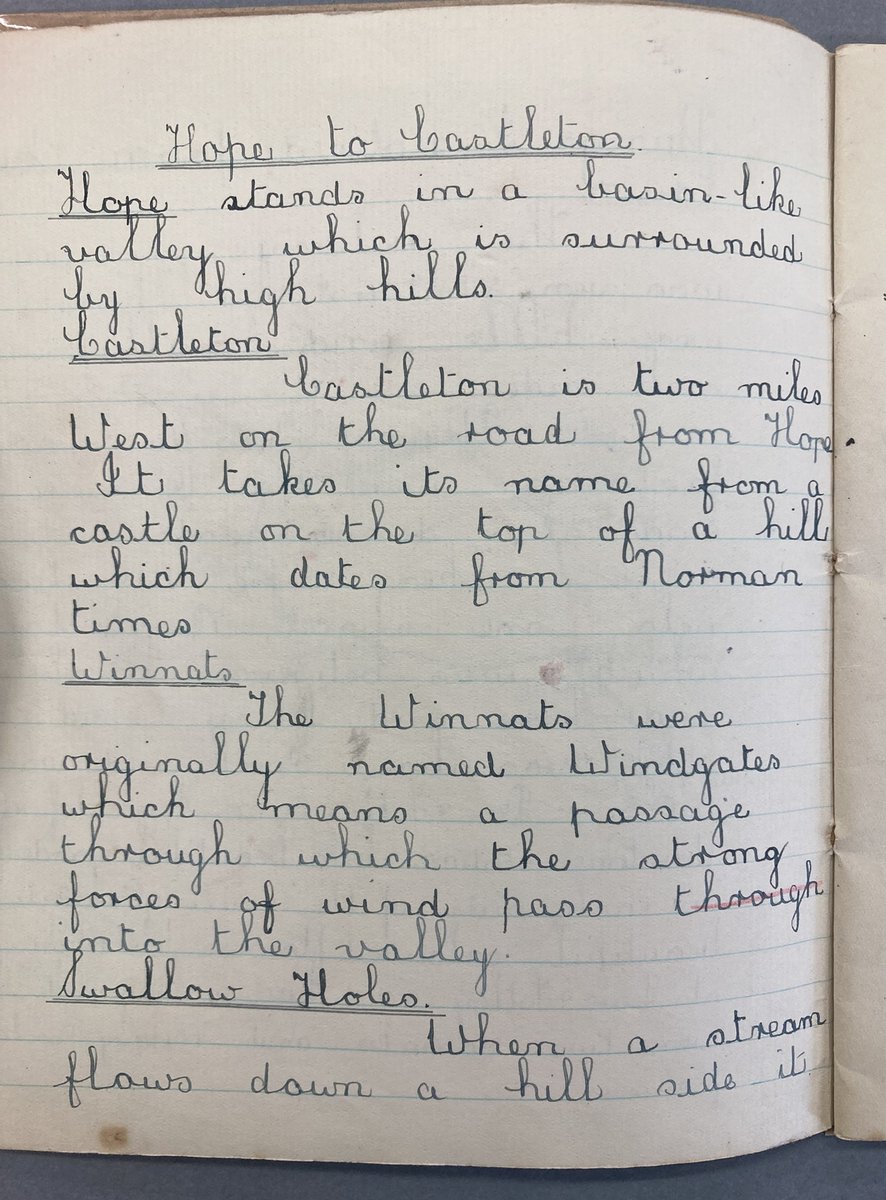 Hope to Castleton.
Hope stands in a basin-like
valley which is surrounded
by high hills.
Castleton
Castleton is two miles
West on the road from Hope
It takes its name from a
castle on the top of a hill
which dates from Norman
times
Winnats
The Winnats were
originally named Windgates
which means a passage
through which the strong
forces of wind pass through
into the valley.
Swallow Holes.
When a stream
flows down a hill side it